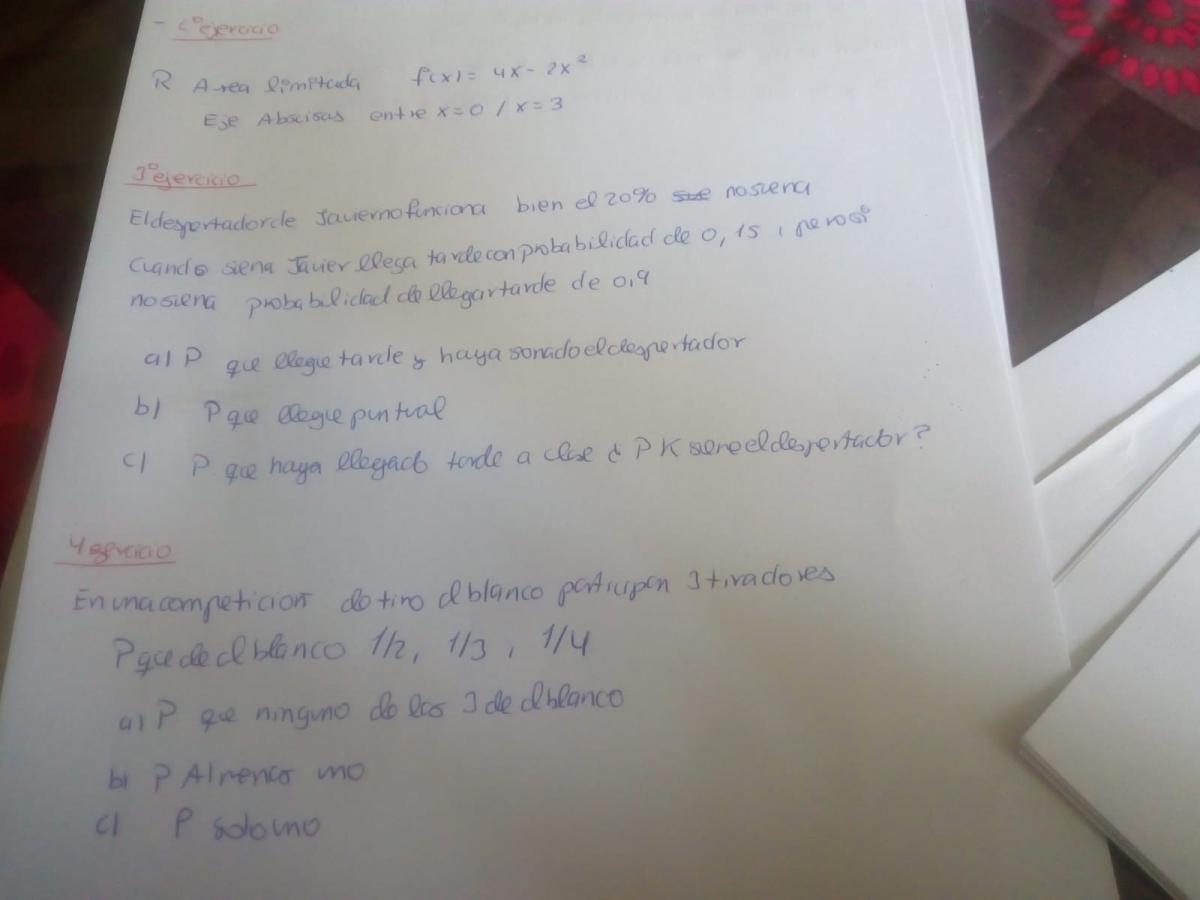 - 2º ejercicio
R Area limitada f(x) = 4x - 2x²
Eje Abscisas entre x=0 / x=3
3º ejercicio
El despertador de Javier no funciona bien el 20% no suena
Cuando suena Javier llega tarde con probabilidad de 0,15, pero si
no suena probabilidad de llegar tarde de 0,9
a) P que llegue tarde y haya sonado el despertador
b) P que llegue puntual
c) P que haya llegado tarde a clase ¿ P K suene el despertador?
4 ejercicio
En una competicion de tiro al blanco participan 3 tiradores
P que de al blanco 1/2, 1/3, 1/4
a) P que ninguno de los 3 de al blanco
b) P Al menos uno
c) P solo uno